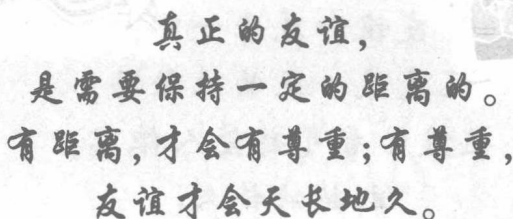 真正的友谊，
是需要保持一定的距离的。
有距离，才会有尊重；有尊重，
友谊才会天长地久。